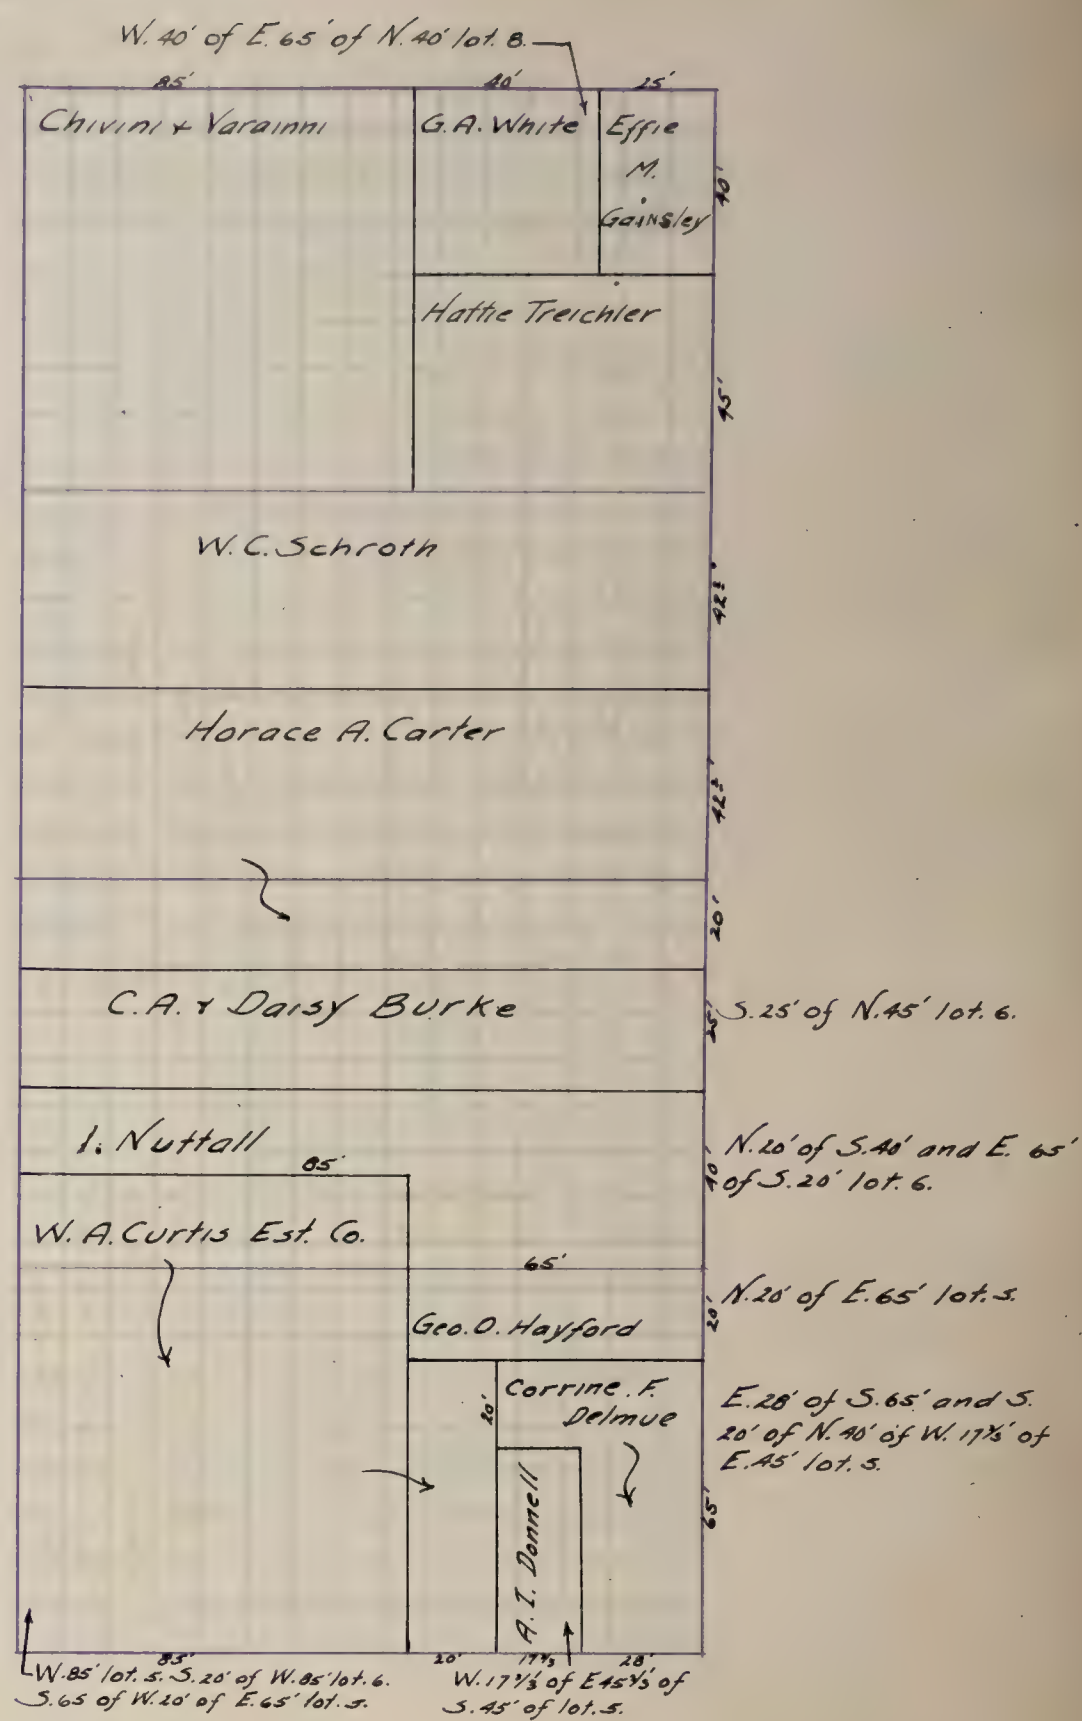 W. 40' of E. 65' of N. 40' lot. 8.
85'
40'
25'
Chivini & Varainni
G.A. White
Effie
M.
Gainsley
40'
Hattie Treichler
45'
W.C. Schroth
42½'
Horace A. Carter
42½'
20'
C.A. & Daisy Burke
25'
S. 25' of N. 45' lot. 6.
I. Nuttall
85'
40'
N. 20' of S. 40' and E. 65'
of S. 20' lot. 6.
W. A. Curtis Est. Co.
65'
N. 20' of E. 65' lot. 5.
20'
Geo. O. Hayford
Corrine. F.
Delmue
20'
E. 28' of S. 65' and S.
20' of N. 40' of W. 17⅓' of
E. 45' lot. 5.
A. I. Donnell
65'
85'
20'
17⅓
28'
W. 85' lot. 5. S. 20' of W. 85' lot. 6.
S. 65 of W. 20' of E. 65' lot. 5.
W. 17⅓' of E 45⅓' of
S. 45' of lot. 5.